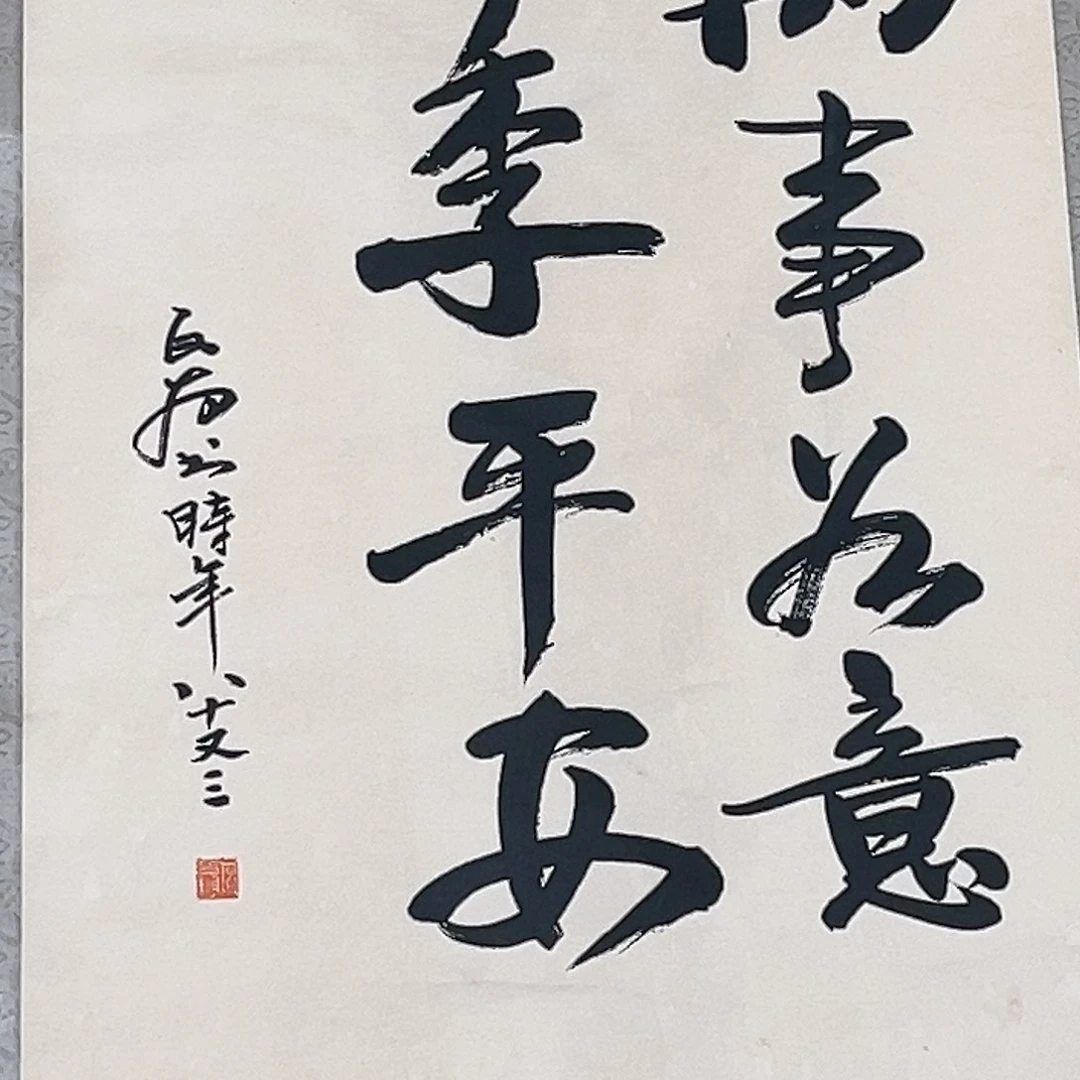 事若意
季平安
書時年八十又三